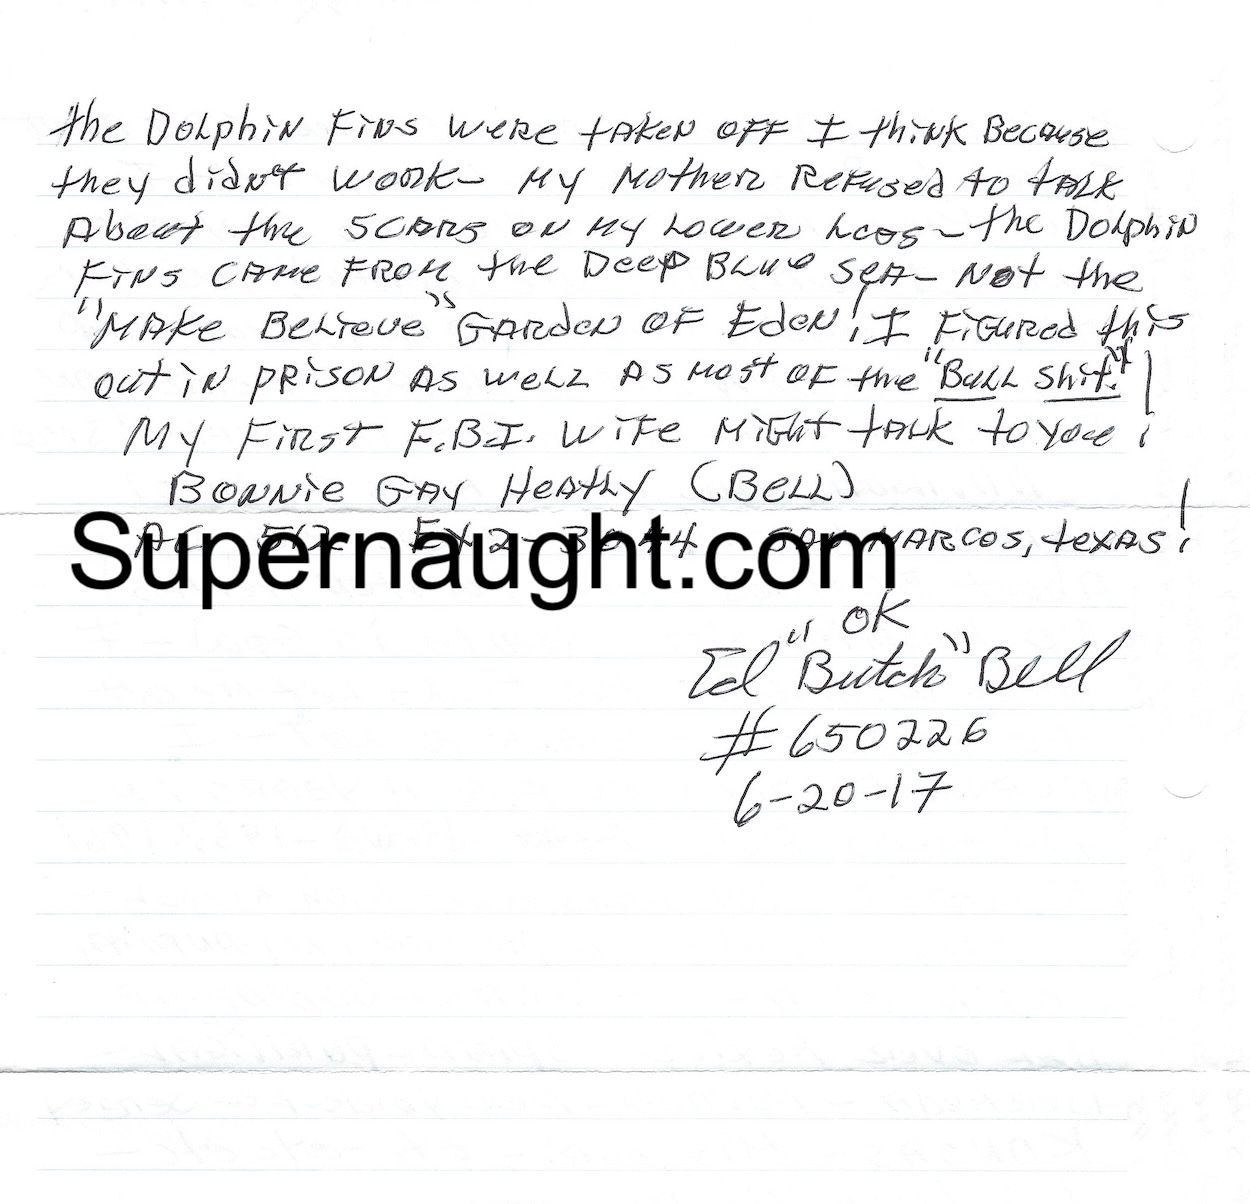 the Dolphin Fins were taken off I think Because
they didn't work- My Mother Refused to talk
About the Scars on My Lower Legs - the Dolphin
Fins Came From the Deep Blue Sea- Not the
"Make Believe" Garden of Eden! I Figured this
out in prison As well As Most of the "Bull Shit."!
My First F.B.I. Wife Might talk to you!
Bonnie Gay Heathy (Bell)
AC 512 San Marcos, texas!
Supernaught.com
OK
Ed "Butch" Bell
#650226
6-20-17